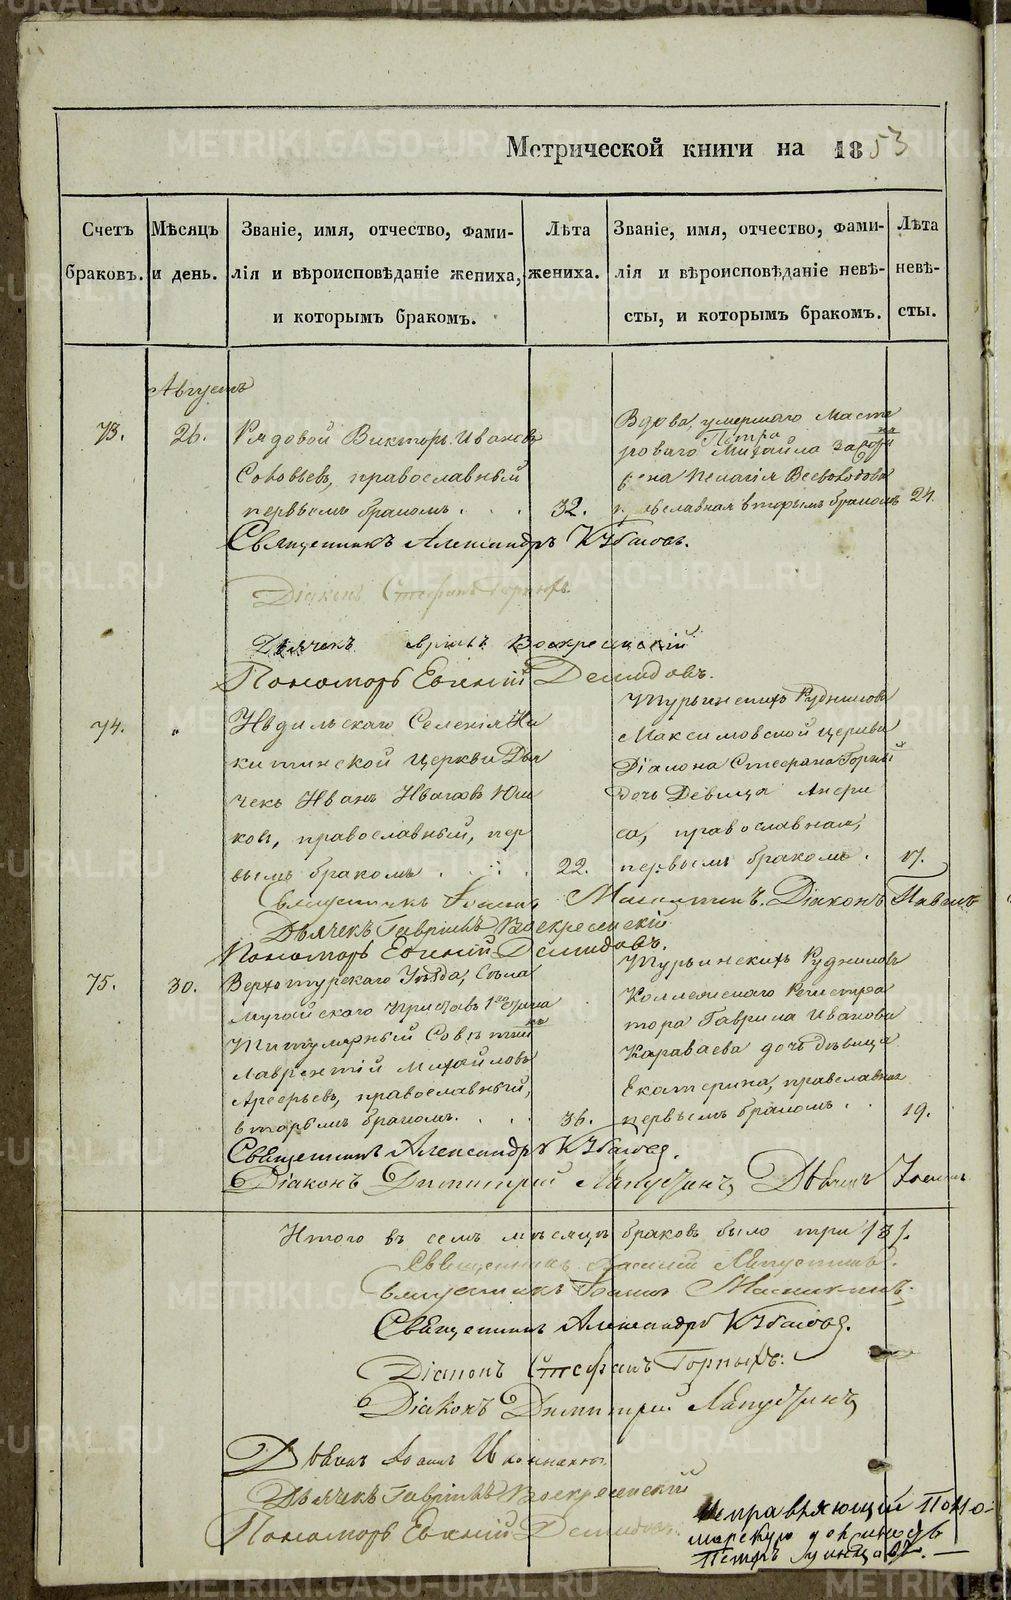 Метрической книги на 1853
Счетъ браковъ.
Мѣсяцъ и день.
Званіе, имя, отчество, фами-
лія и вѣроисповѣданіе жениха,
и которымъ бракомъ.
Лѣта жениха.
Званіе, имя, отчество, фами-
лія и вѣроисповѣданіе невѣ-
сты, и которымъ бракомъ.
Лѣта невѣ-
сты.
Августъ
73.
26.
Рядовой Викторъ Ивановъ
Соловьевъ, православный
первымъ бракомъ . . .
32.
Вдова умершаго Масте
Петра
роваго Михайла
жена Пелагія Всеволодова
православная вторымъ бракомъ
24.
Священникъ Александръ
Діаконъ Стефанъ Горныхъ
Дьячекъ Воскресенскій
Пономарь Евгеній Демидовъ.
74.
"
Ивдильскаго Селенія Ни
китинской церкви Дья
чекъ Иванъ Ивановъ
ковъ, православный, пер
вымъ бракомъ . . . .
22.
Турьинскихъ Рудниковъ
Максимовской церкви
Діакона Стефана Горныхъ
дочь Дѣвица Анфи
са, православная,
первымъ бракомъ .
17.
Священникъ Іоаннъ Діаконъ Павелъ
Дьячекъ Гавріилъ Воскресенскій
Пономарь Евгеній Демидовъ.
75.
30.
Верхотурскаго Уѣзда, Села
Мугайскаго Приставъ 1го стана
Титулярный Совѣтникъ
Лаврентій Михайловъ
Арефьевъ, православный,
вторымъ бракомъ. . . .
36.
Турьинскихъ Рудниковъ
Коллежскаго Регистра
тора Гаврила Иванова
Караваева дочь дѣвица
Екатерина, православная
первымъ бракомъ . .
19.
Священникъ Александръ
Діаконъ Димитрій Лапустинъ, Дьячекъ
Итого въ семъ мѣсяцѣ браковъ было три /3/.
Священникъ Василій
Священникъ Іоаннъ
Священникъ Александръ
Діаконъ Стефанъ Горныхъ.
Діаконъ Димитрій Лапустинъ
Дьячекъ
Дьячекъ Гавріилъ Воскресенскій
Пономарь Евгеній Демидовъ.
Исправляющій Поно-
марскую должность
Петръ
METRIKI.GASO-URAL.RU